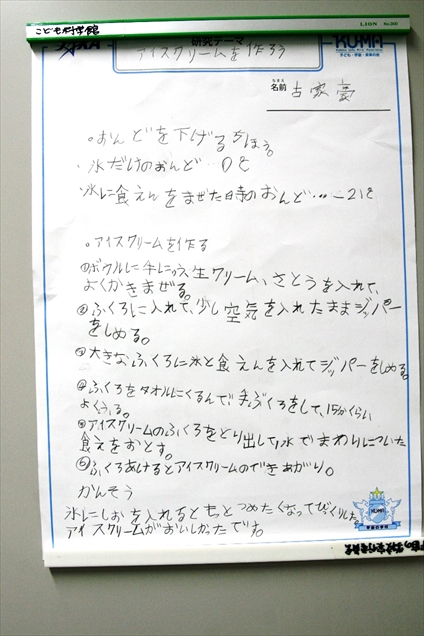 こども科学館
LION
No.300
研究テーマ
アイスクリームを作ろう
KUMA
子ども・宇宙・未来の会
名前 古家豪
なまえ
。おんどを下げるちほう。
・氷だけのおんど…0℃
・氷に食えんをまぜた時のおんど…-21℃
。アイスクリームを作る
①ボウルに牛にゅう生クリーム、さとうを入れて、
よくかきまぜる。
②ふくろに入れて、少し空気を入れたままジッパー
をしめる。
③大きなふくろに氷と食えんを入れてジッパーをしめる。
④ふくろをタオルにくるんで、手ぶくろをして、15分くらい
よくふる。
アイスクリームのふくろをとり出して、水でまわりについた
食えをおとす。
ふくろあけるとアイスクリームのできあがり。
かんそう
氷にしおを入れるともっとつめたくなってびっくりした。
アイスクリームがおいしかったです。
KUMA
宇宙の学校